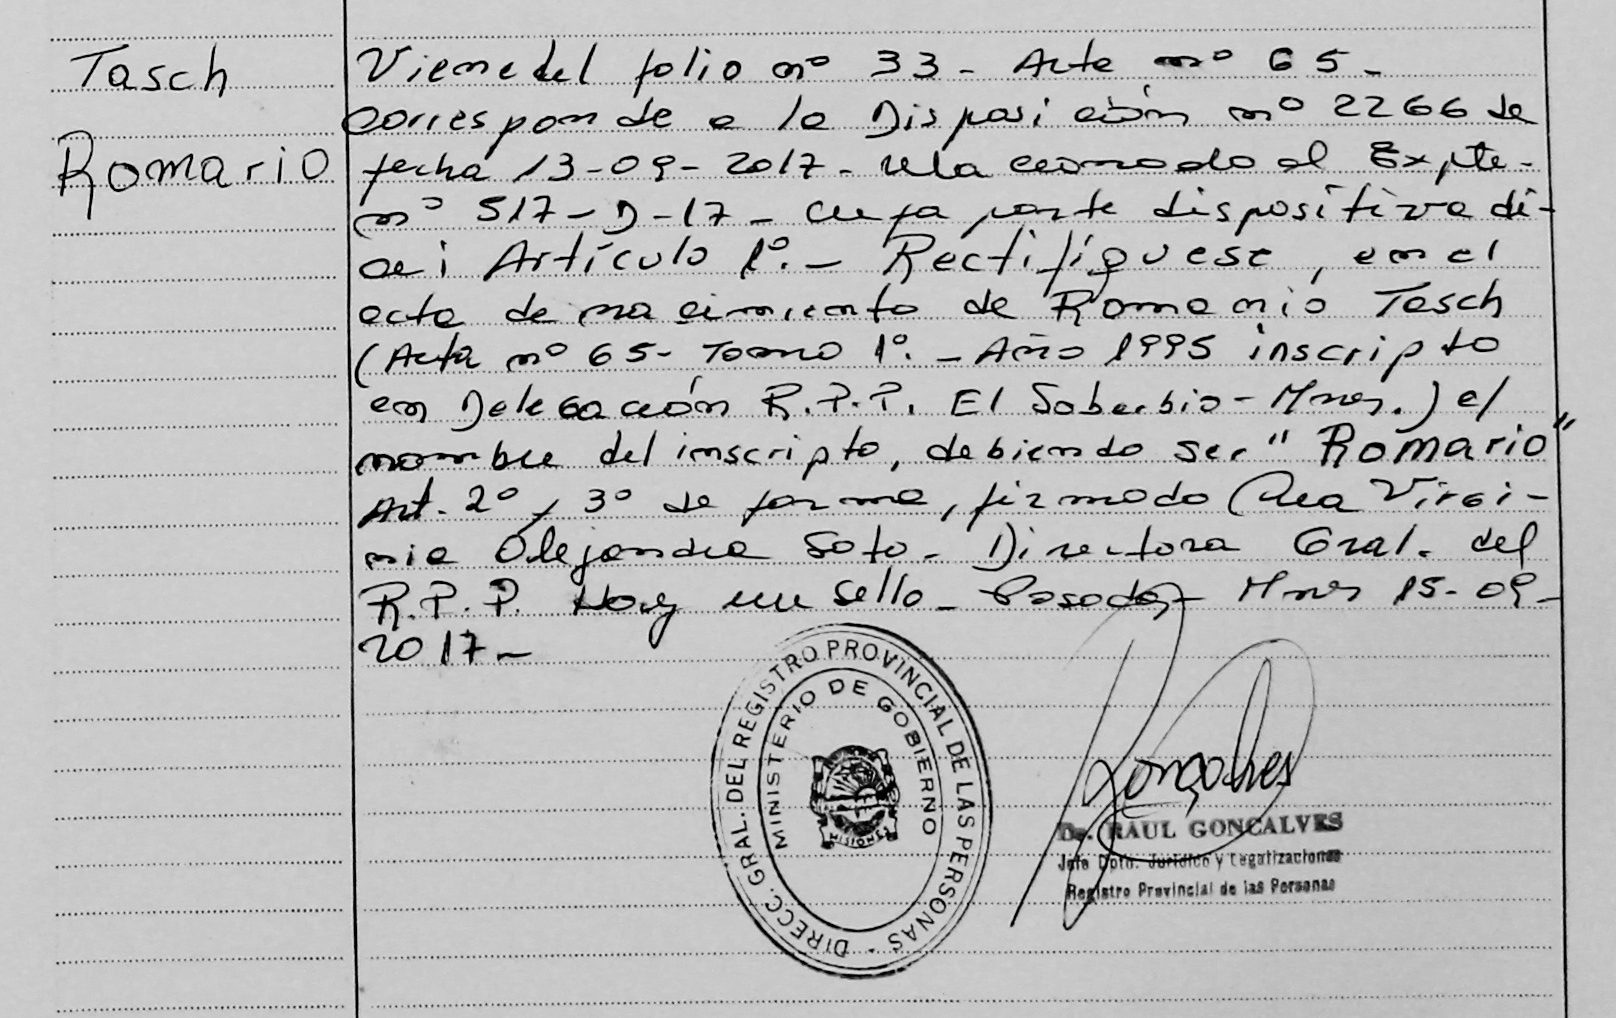 Tasch
Romario
Viene del folio nº 33 - Acta nº 65 -
corresponde a la Disposición nº 2266 de
fecha 13-09-2017 - relacionado al Expte-
nº 517-D-17 - cuya parte dispositiva di-
ce: Artículo 1º.- Rectifíquese, en el
acta de nacimiento de Romanio Tasch
(Acta nº 65 - Tomo 1º. - Año 1995 inscripto
en Delegación R.P.P. El Soberbio - Mnes.) el
nombre del inscripto, debiendo ser "Romario"
Art. 2º y 3º de forma, firmado Dra Virgi-
nia Alejandra Soto - Directora Gral. del
R.P.P. Hay un sello - Posadas Mnes 15-09-
2017 -
DIRECC. GRAL. DEL REGISTRO PROVINCIAL DE LAS PERSONAS -
MINISTERIO DE GOBIERNO
MISIONES
Gonçalves
Dr. RAUL GONCALVES
Jefe Dpto. Jurídico y Legalizaciones
Registro Provincial de las Personas